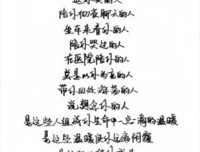 陪你彻夜聊天的人
坐车来看你的人
陪你哭过的人
在医院陪你的人
总是以你为重的人
带你四处游荡的人
说想念你的人
是这些人组成你生命中一点一滴的温暖
是这些温暖使你远离阴霾